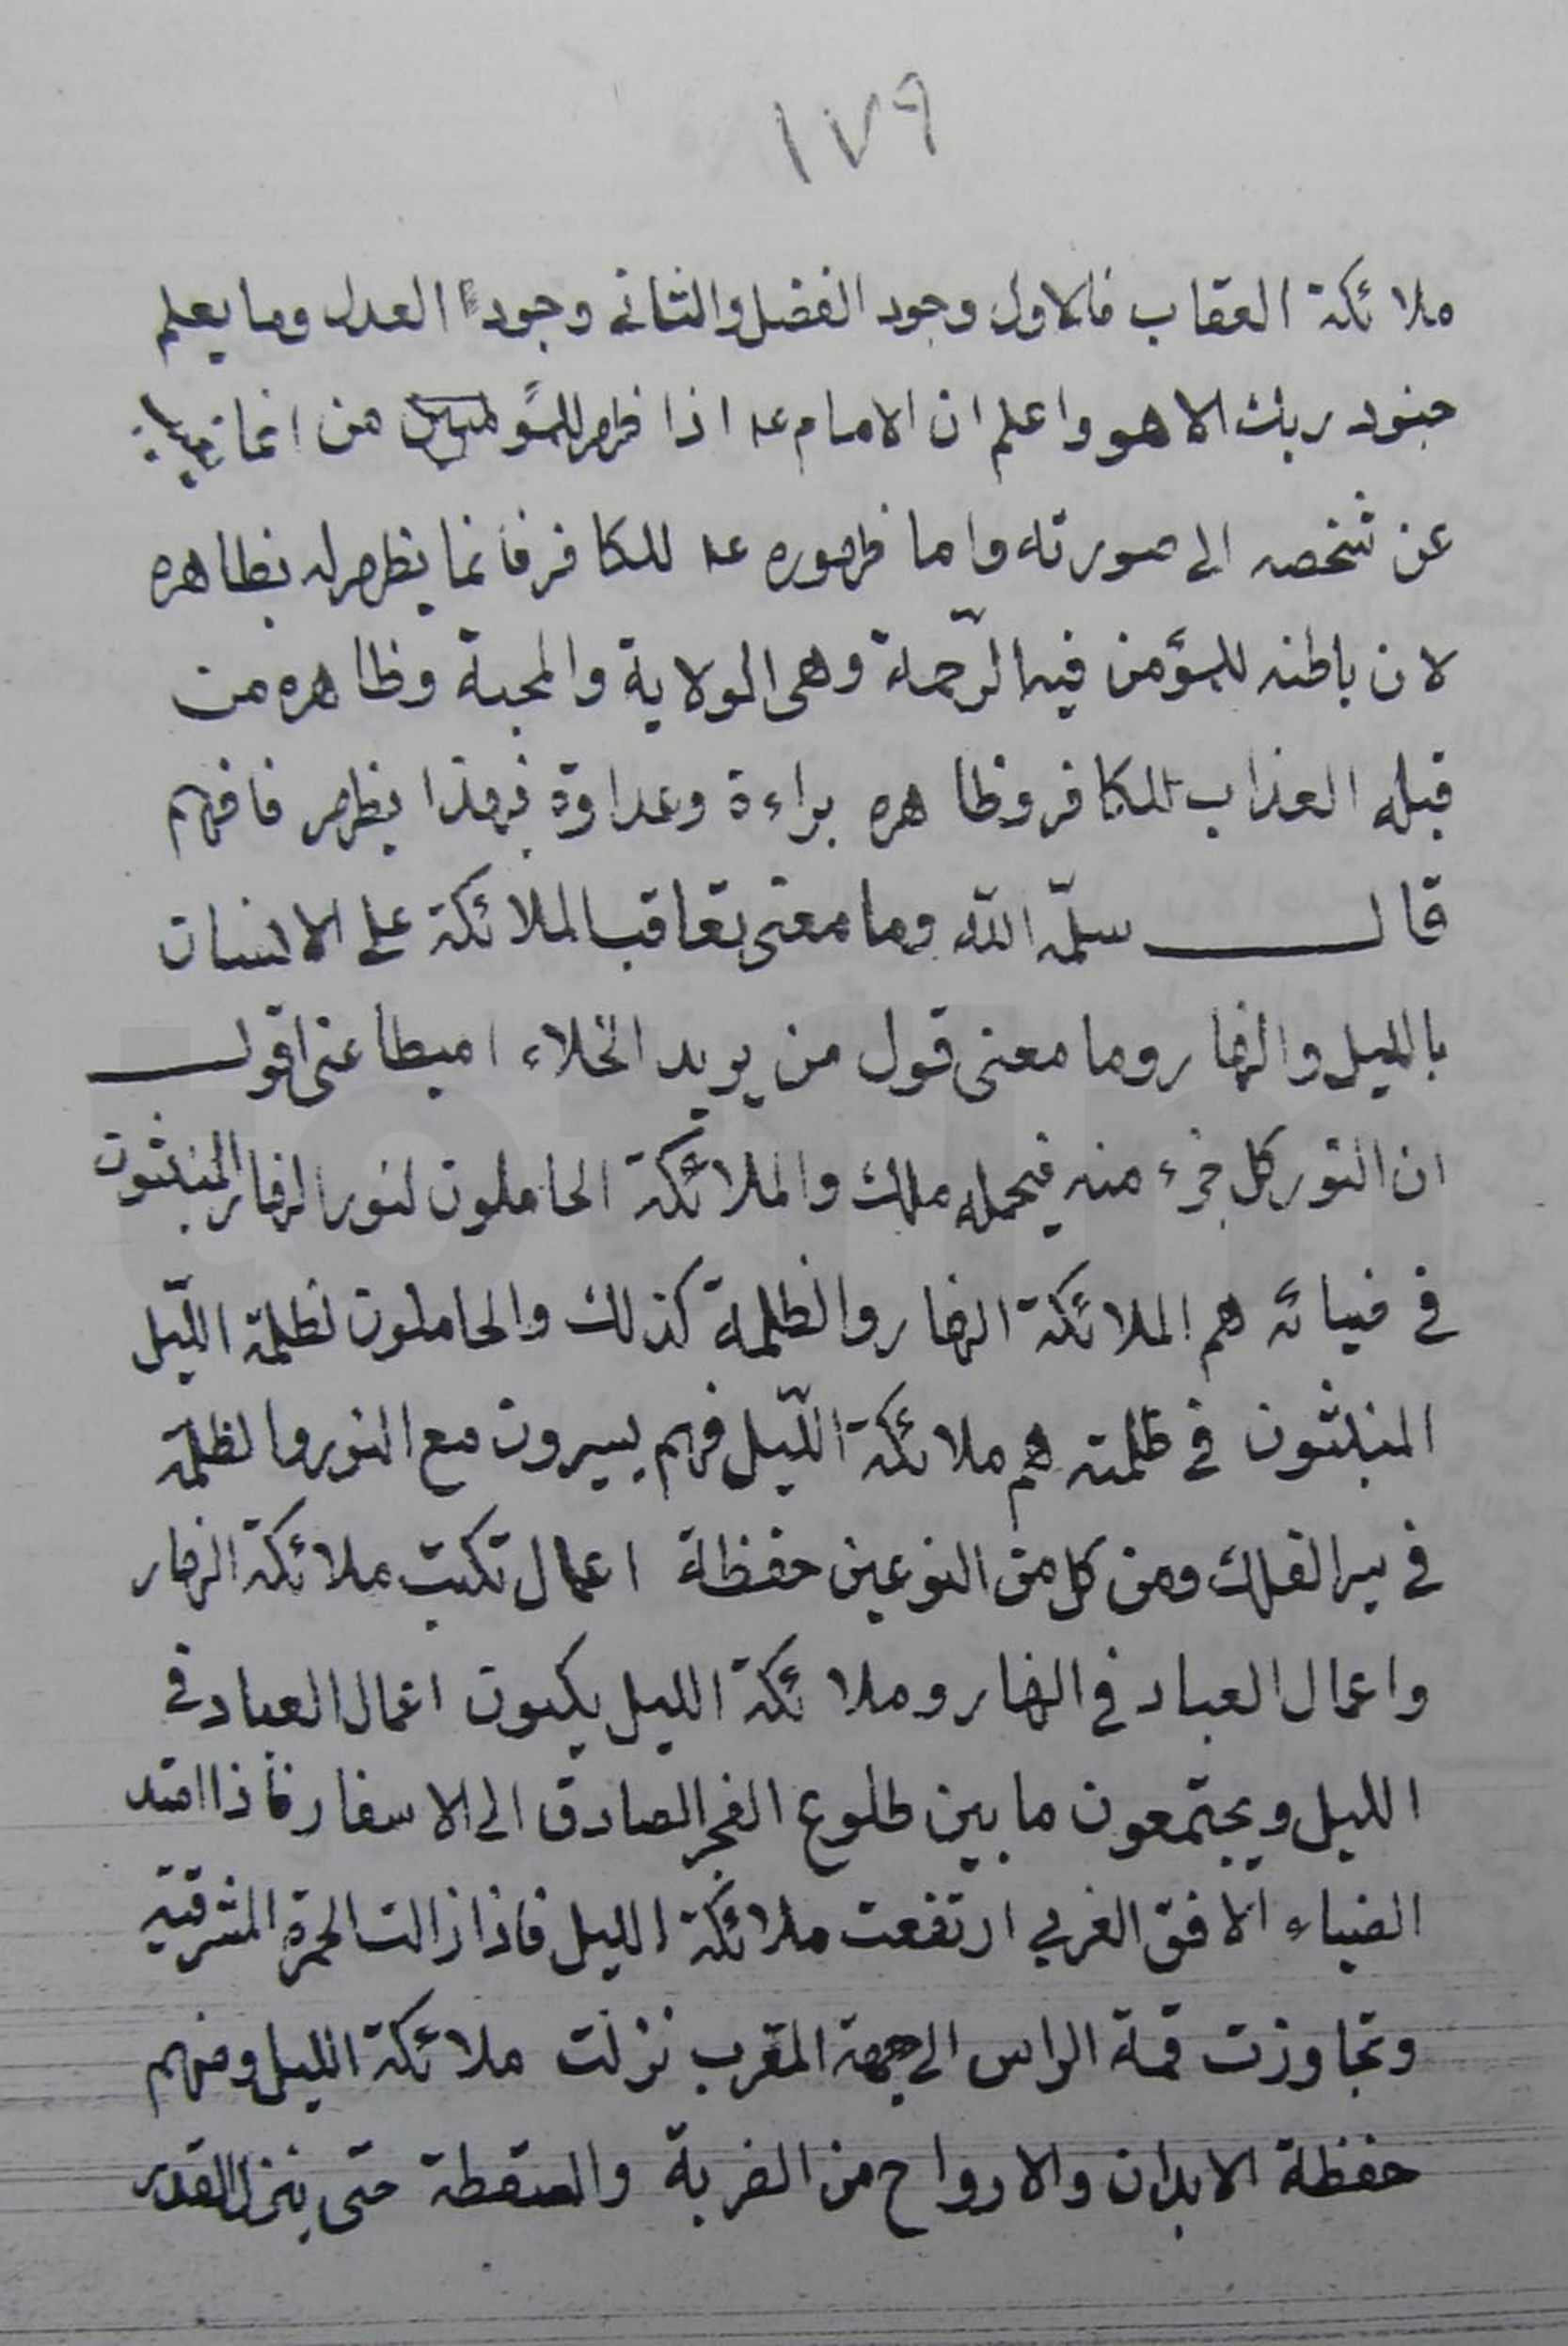 ١٧٩
ملائكة العقاب فالاول وجود الفضل والثانى وجود العدل وما يعلم
جنود ربك الا هو واعلم ان الامام عه اذا ظهر للمؤمنين من انما
عن شخصه الى صورته واما ظهوره عه للكافر فانما يظهر له بظاهره
لان باطنه للمؤمن فيه الرّحمة وهى الولاية والمحبة وظاهره من
قبله العذاب للكافر وظاهره براءة وعداوة فبهذا يظهر فافهم
قال سلمّه اللّه وما معنى تعاقب الملائكة على الانسان
بالليل والنهار وما معنى قول من يريد الخلاء اميطا عنى اقول
ان النور كل جزء منه فيحمله ملك والملائكة الحاملون لنور النهار المنبثون
في ضيائه هم الملائكة النهار والظلمة كذلك والحاملون لظلمة اللّيل
المنبثون في ظلمته هم ملائكة اللّيل فهم يسيرون مع النور والظلمة
في سير الفلك ومن كل من النوعين حفظة اعمال تكتب ملائكة النهار
واعمال العباد في النهار وملائكة الليل يكتبون اعمال العباد في
الليل ويجتمعون ما بين طلوع الفجر الصادق الى الاسفار فاذا امتد
الضياء الافق الغربي ارتفعت ملائكة الليل فاذا زالت الحمرة المشرقية
وتجاوزت قمة الراس الى جهة المغرب نزلت ملائكة الليل ومنهم
حفظة الابدان والارواح من الضربة والسقطة حتى ينزل القدر